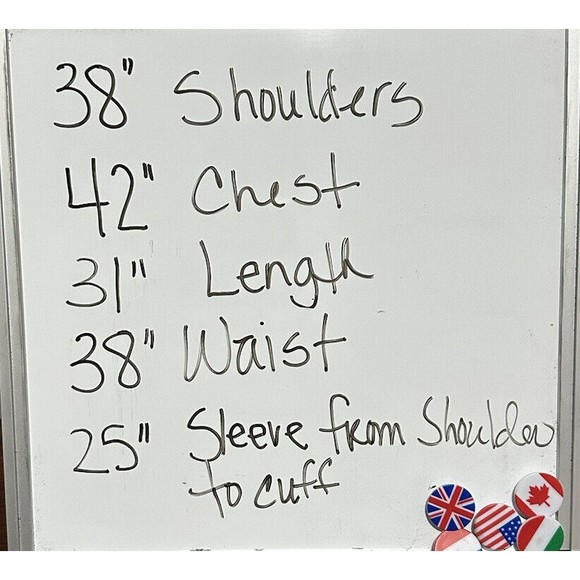 38" Shoulders
42" Chest
31" Length
38" Waist
25" Sleeve from Shoulder
to cuff